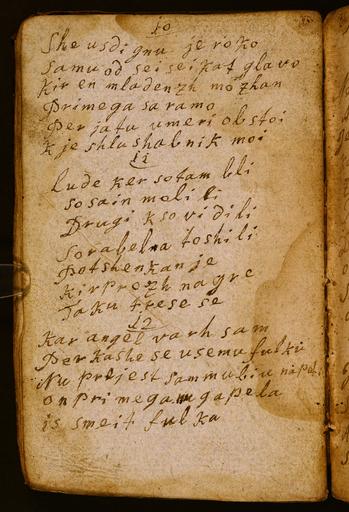 10
She usdignu je roko
Samu od sei seikat glavo
kir en mladenzh mozhan
Primega sa ramo
Per jatu umeri obstoi
k je shlushabnik moi
11
Lude ker so tam bli
so sain moli li
Drugi k so vidili
So rabelna toshili
Potshenkanje
kir prozh na gre
Taku trese se
12
kar angel varh sam
Per kashe se usemu fulku
Nu prejest sam mubiu na
on prime ga gapela
is smeit fulka